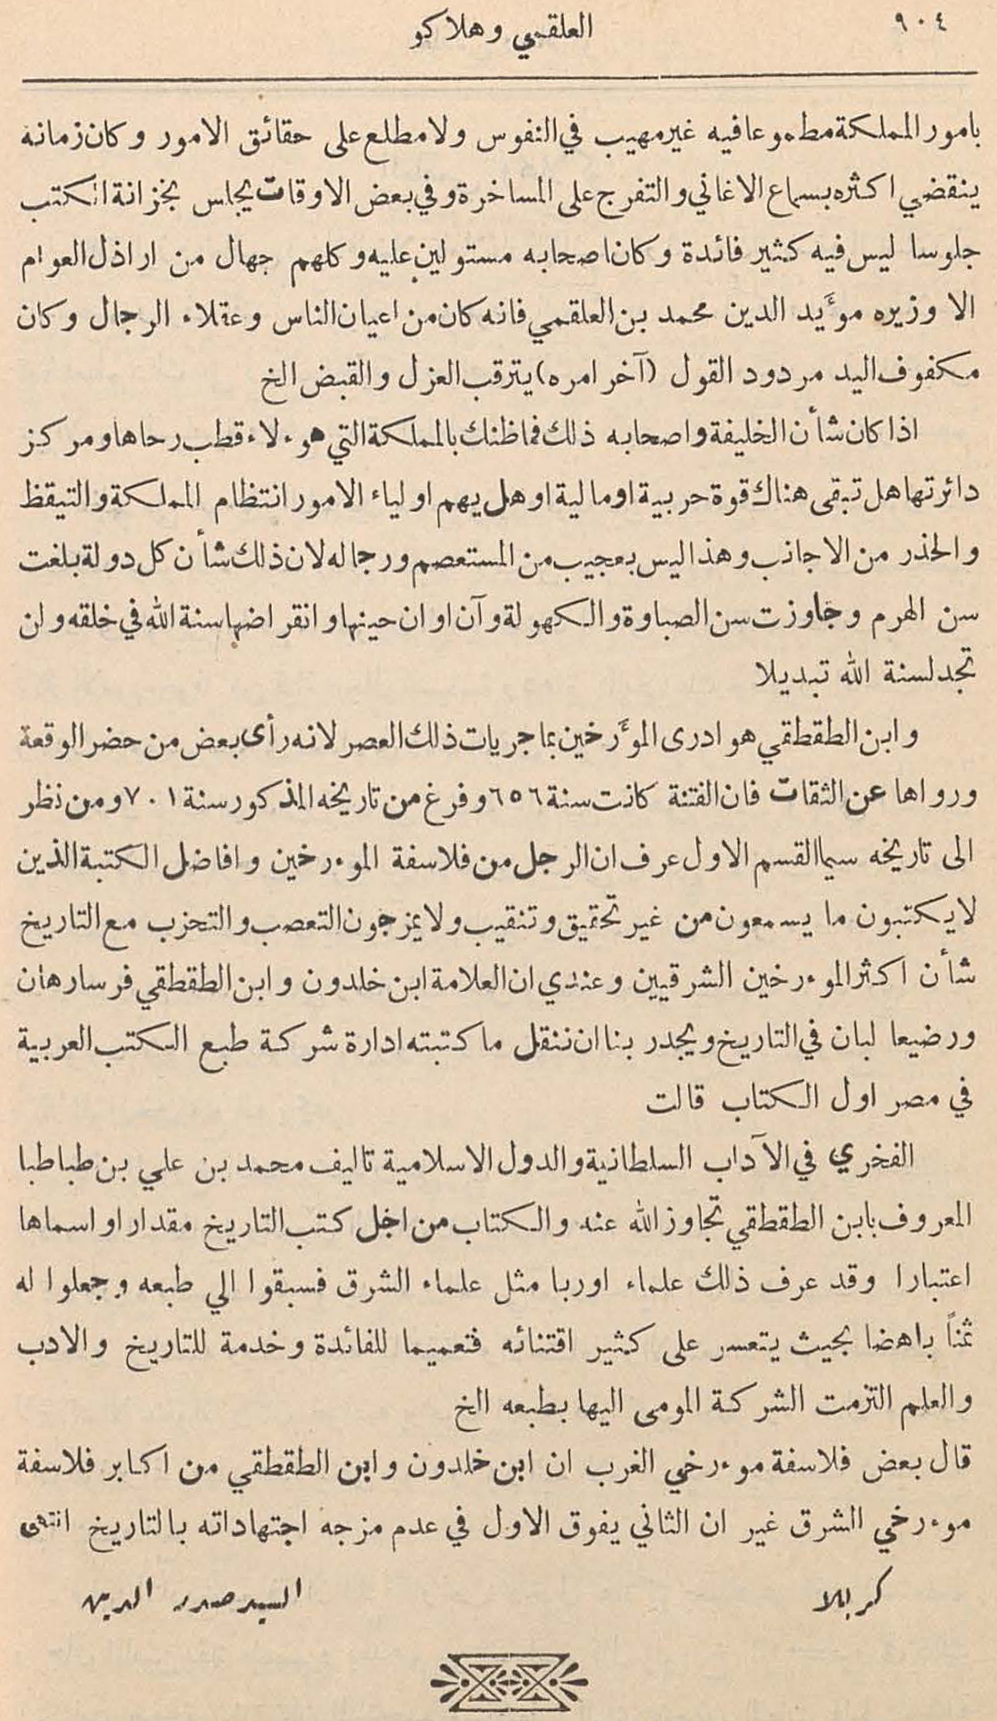 ٩٠٤
العلقمي وهلاكو
بامور المملكة مطموعا فيه غير مهيب في النفوس ولا مطلع على حقائق الامور وكان زمانه
ينقضي اكثره بسماع الاغاني والتفرج على المساخرة وفي بعض الاوقات يجلس بخزانة الكتب
جلوسا ليس فيه كثير فائدة وكان اصحابه مستولين عليه وكلهم جهال من اراذل العوام
الا وزيره موَّيد الدين محمد بن العلقمي فانه كان من اعيان الناس وعقلاء الرجال وكان
مكفوف اليد مردود القول (آخر امره) يترقب العزل والقبض الخ
اذا كان شأن الخليفة واصحابه ذلك فما ظنك بالمملكة التي هوءلاء قطب رحاها ومركز
دائرتها هل تبقى هناك قوة حربية او مالية او هل يهم اولياء الامور انتظام المملكة والتيقظ
والحذر من الاجانب وهذا ليس بعجيب من المستعصم ورجاله لان ذلك شأن كل دولة بلغت
سن الهرم وجاوزت سن الصباوة والكهولة وآن اوان حينها وانقراضها سنة الله في خلقه ولن
تجد لسنة الله تبديلا
وابن الطقطقي هو ادرى الموَّرخين بما جريات ذلك العصر لانه رأى بعض من حضر الوقعة
ورواها عن الثقات فان الفتنة كانت سنة ٦٥٦ وفرغ من تاريخه المذكور سنة ٧٠١ ومن نظر
الى تاريخه سيما القسم الاول عرف ان الرجل من فلاسفة الموءرخين وافاضل الكتبة الذين
لا يكتبون ما يسمعون من غير تحقيق وتنقيب ولا يمزجون التعصب والتحزب مع التاريخ
شأن اكثر الموءرخين الشرقيين وعندي ان العلامة ابن خلدون وابن الطقطقي فرسا رهان
ورضيعا لبان في التاريخ ويجدر بنا ان ننقل ما كتبته ادارة شركة طبع الكتب العربية
في مصر اول الكتاب قالت
الفخري في الآداب السلطانية والدول الاسلامية تاليف محمد بن علي بن طباطبا
المعروف بابن الطقطقي تجاوز الله عنه والكتاب من اجل كتب التاريخ مقدارا واسماها
اعتبارا وقد عرف ذلك علماء اوربا مثل علماء الشرق فسبقوا الي طبعه وجعلوا له
ثمناً باهضا بحيث يتعسر على كثير اقتنائه فتعميما للفائدة وخدمة للتاريخ والادب
والعلم التزمت الشركة المومى اليها بطبعه الخ
قال بعض فلاسفة موءرخي الغرب ان ابن خلدون وابن الطقطقي من اكابر فلاسفة
موءرخي الشرق غير ان الثاني يفوق الاول في عدم مزجه اجتهاداته بالتاريخ انتهى
كربلا
السيد صدر الدين